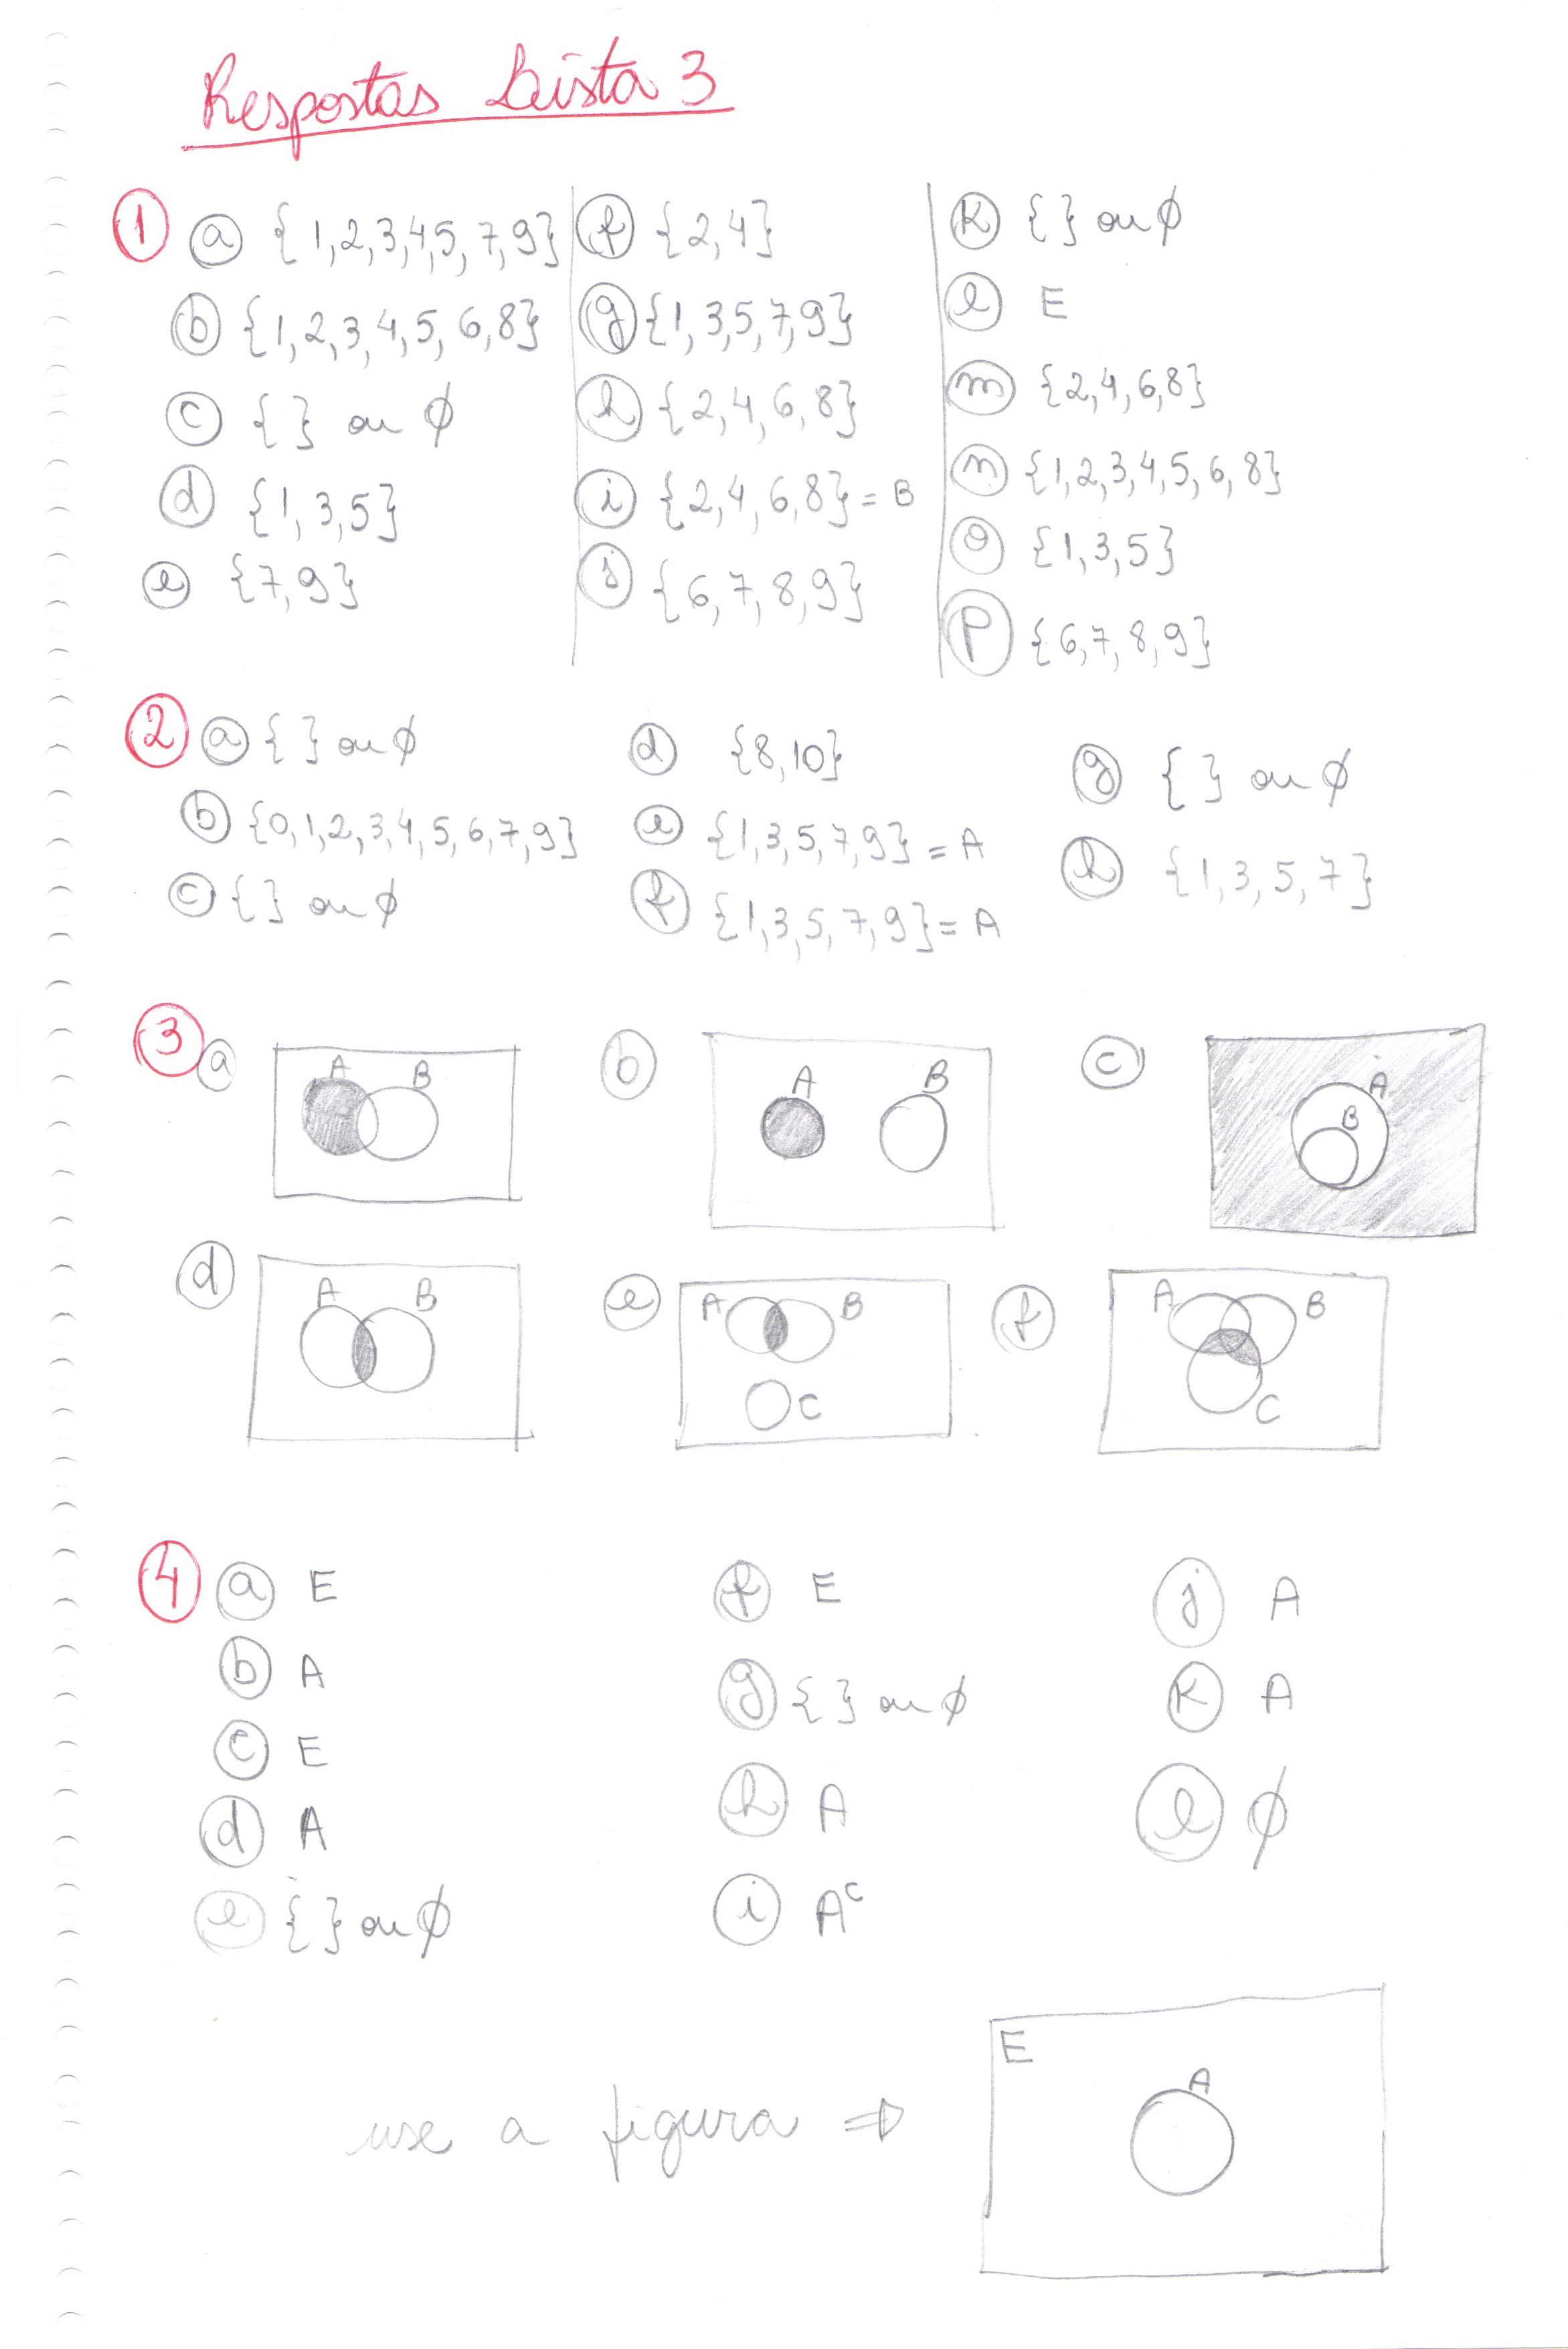 Respostas Lista 3
1 a {1,2,3,4,5,7,9}
b {1,2,3,4,5,6,8}
c { } ou ∅
d {1,3,5}
e {7,9}
f {2,4}
g {1,3,5,7,9}
h {2,4,6,8}
i {2,4,6,8} = B
j {6,7,8,9}
k { } ou ∅
l E
m {2,4,6,8}
n {1,2,3,4,5,6,8}
o {1,3,5}
p {6,7,8,9}
2 a { } ou ∅
b {0,1,2,3,4,5,6,7,9}
c { } ou ∅
d {8,10}
e {1,3,5,7,9} = A
f {1,3,5,7,9} = A
g { } ou ∅
h {1,3,5,7}
3 a A B
b A B
c A B
d A B
e A B C
f A B C
4 a E
b A
c E
d A
e { } ou ∅
f E
g { } ou ∅
h A
i Aᶜ
j A
k A
l ∅
use a figura ⇒
E
A